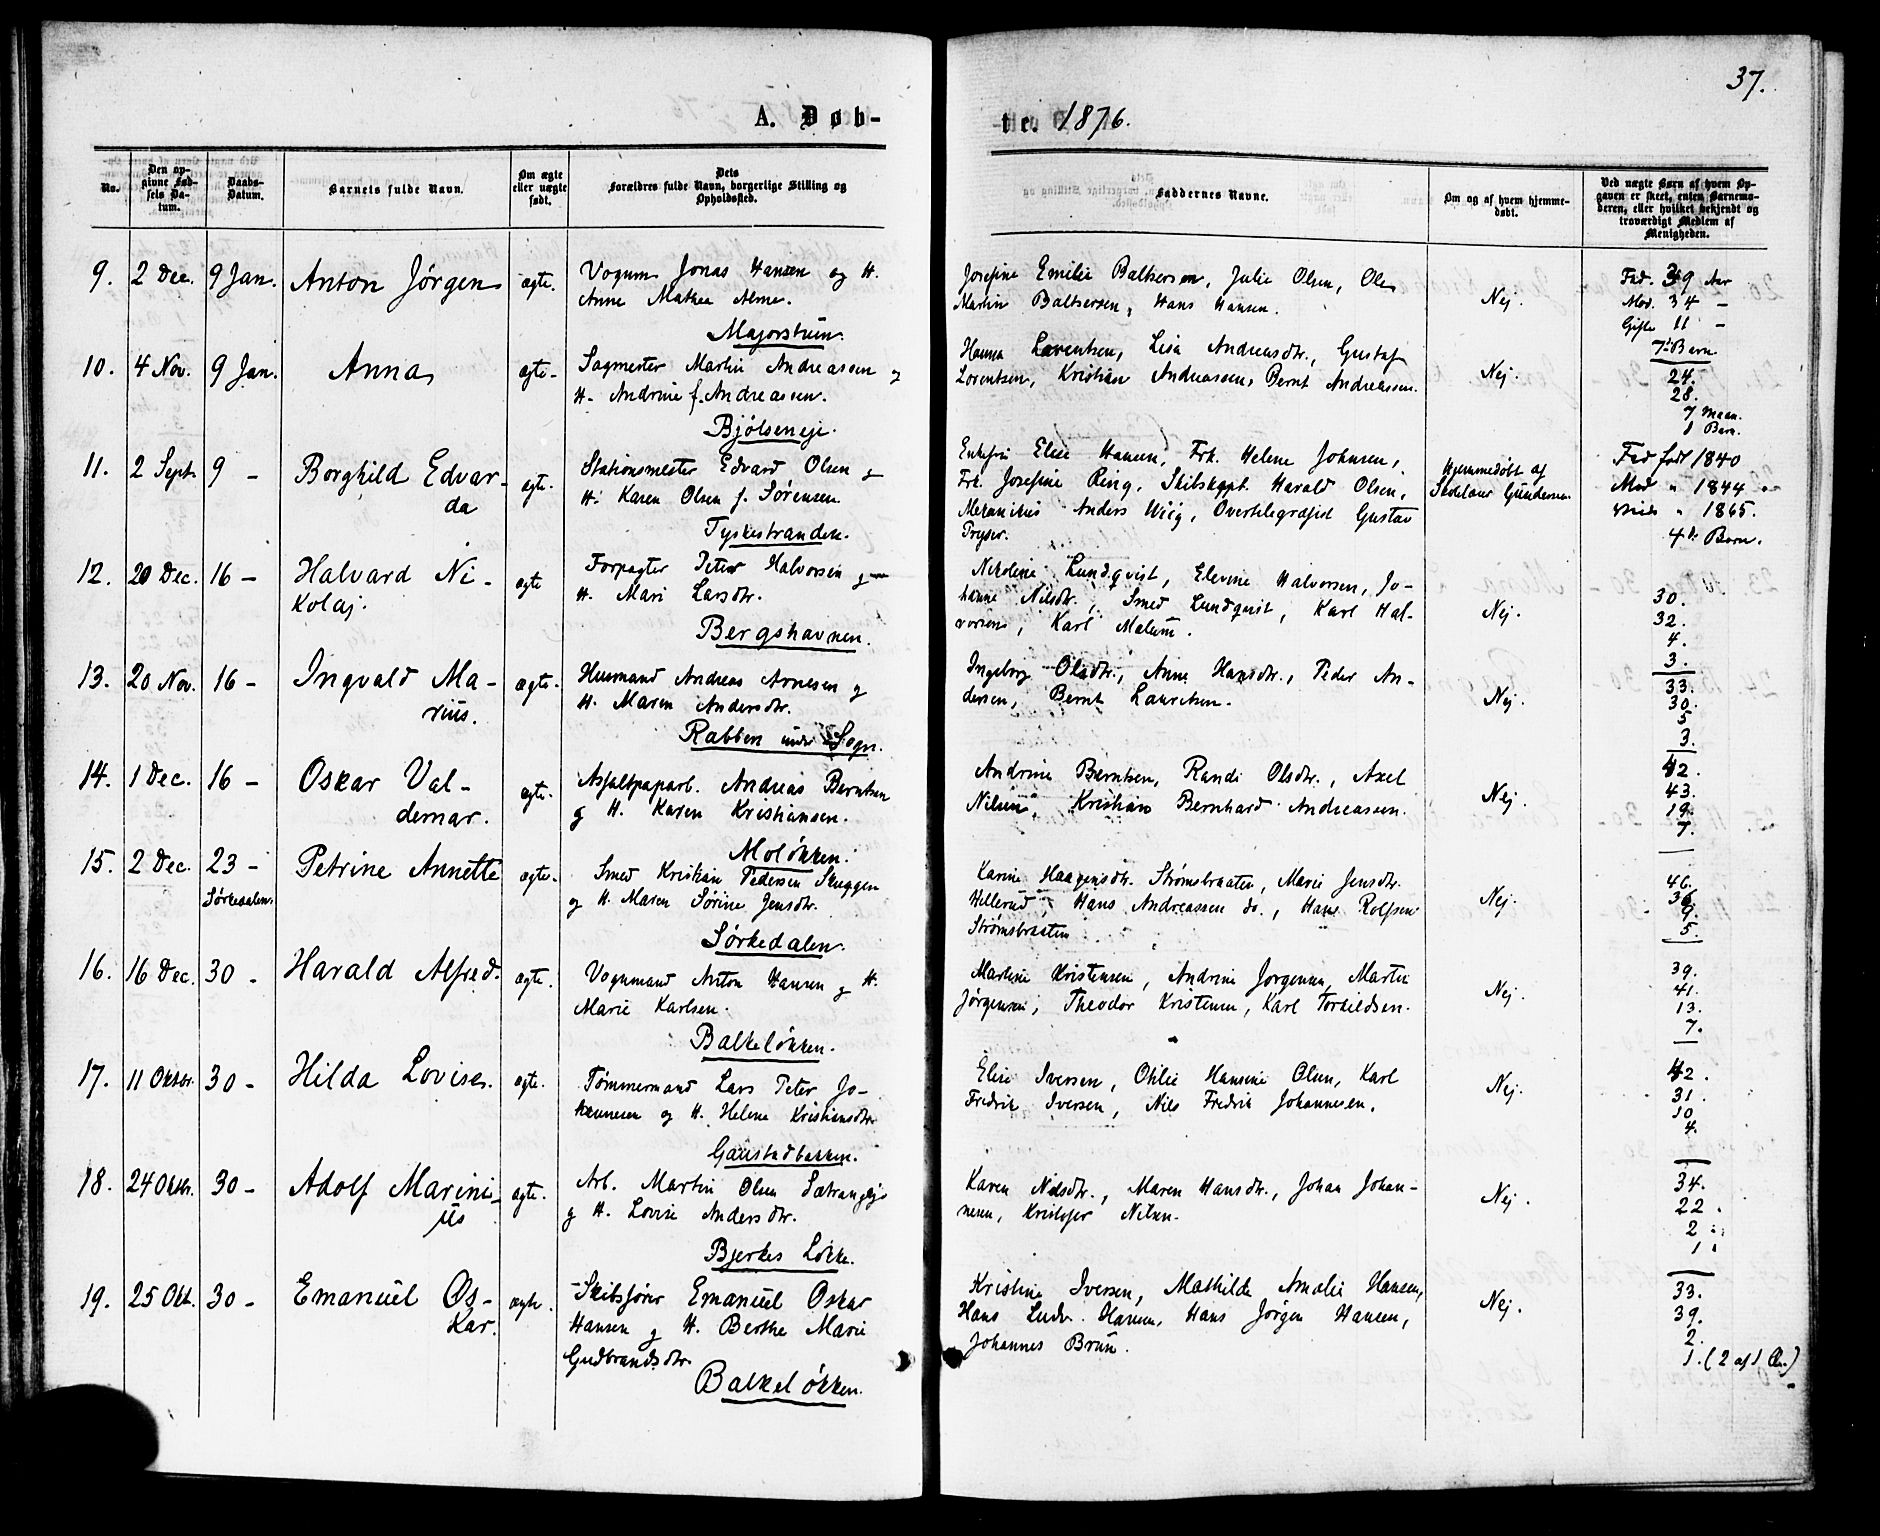 37.
A. Døb-
te. 1876.
No.
Den op-
givne Fød-
sels Da-
tum.
Daabs-
Datum.
Barnets fulde Navn.
Om ægte
eller uægte
født.
Dets
Forældres fulde Navn, borgerlige Stilling og
Opholdssted.
Faddernes Navne.
Om og af hvem hjemme-
døbt.
Ved uægte Børn af hvem Op-
gaven er skeet, enten Barnemo-
deren, eller hvilket bekjendt og
troværdigt Medlem af
Menigheden.
9. 2 Dec. 9 Jan. Anton Jørgen ægte.
Vognm. Jonas Hansen og H.
Anne Mathea
Majorstuen.
Josefine Emilie Baltsersen, Julie Olsen, Ole
Martin Baltsersen, Hans Hansen.
Nej.
Fad. 39 Aar
Mod. 34 -
Gifte 11 -
7de Barn
10. 4 Nov. 9 Jan. Anna ægte-
Sagmester Martin Andreassen og
H. Andrine f. Andreassen.
Bjølseneje.
Hanna Lorentsen, Lisa Andreasdtr., Gustaf
Lorentsen, Kristian Andreassen, Bernt Andreassen.
Nej.
24.
28.
7 Maan.
1 Barn.
11. 2 Sept. 9 - Borghild Edvar-
da
ægte.
Stationsmester Edvard Olsen og
H. Karen Olsen f. Sørensen
Tyskestranden.
Enkefru Elise Hansen, Frk. Helene Johnsen,
Frk. Josefine Ring, Skibskapt. Harald Olsen,
Mekanikus Anders Wiig, Overtelegrafist Gustav
Fryser.
Hjemmedøbt af
Skolelær Gundersen.
Fad født 1840
Mod " 1844
" 1865.
4de Barn.
12. 20 Dec. 16 - Halvard Ni-
kolaj.
ægte
Forpagter Peter Halvorsen og
H. Mari Larsdtr.
Bergshavnen.
Nikoline Lundqvist, Elevine Halvorsen, Jo-
hanne Nilsdtr., Smed Lundqvist, Karl Hal-
vorsens, Karl Malum.
Nej.
30.
32.
4.
3.
13. 20 Nov. 16 - Ingvald Ma-
rius.
ægte.
Husmand Andreas Arnesen og
H. Maren Andersdtr.
Rabben under Sogn.
Ingeborg Olsdtr., Anne Hansdtr., Peder An-
dersen, Bernt Lauritsen.
Nej.
33.
30.
5
3.
14. 1 Dec. 16 - Oskar Val-
demar.
ægte.
Asfaltpaparb. Andreas Berntsen
og H. Karen Kristiansen.
Moløkken.
Andrine Berntsen, Randi Olsdtr., Axel
Nilsen, Kristian Bernhard Andreassen.
Nej.
42.
43.
19.
7.
15. 2 Dec. 23 -
Sørkedalen.
Petrine Annette ægte.
Smed Kristian Pedersen Skuggen
og H. Maren Sørine Jensdtr.
Sørkedalen.
Karine Haagensdtr. Strømsbraaten, Marie Jensdtr.
Hillerud, Hans Andreassen do., Hans Rolfsen
Strømsbraaten
Nej.
46.
36.
9.
5.
16. 16 Dec. 30 - Harald Alfred. ægte.
Vognmand Anton Hansen og H.
Marie Karlsen.
Balkeløkken.
Martine Kristensen, Andrine Jørgensen, Martin
Jørgensen, Theodor Kristensen, Karl Torkildsen.
Nej.
39.
41.
13.
7.
17. 11 Oktbr. 30 - Hilda Lovise. ægte.
Tømmermand Lars Peter Jo-
hannesen og H. Helene Kristiansdtr.
Gaustadbakken.
Elise Iversen, Othlie Hansine Olsen, Karl
Fredrik Iversen, Nils Fredrik Johannesen.
Nej.
42.
31.
10
4.
18. 24 Oktbr. 30 - Adolf Marini-
us
ægte.
Arb. Martin Olsen
og H. Lovise Andersdtr.
Bjerkes Løkke.
Karen Nilsdtr., Maren Hansdtr., Johan Johan-
nesen, Kristofer Nilsen.
Nej.
34.
22.
2
1
19. 25 Okt. 30 - Emanuel Os-
kar.
ægte.
Skibsfører Emanuel Oskar
Hansen og H. Berthe Marie
Gudbrandsdtr.
Balkeløkken.
Kristine Iversen, Mathilde Amalie Hansen,
Hans Ludv. Hansen, Hans Jørgen Hansen,
Johannes Brun.
Nej.
33.
39.
2.
1. (2 af 1 Æ.)